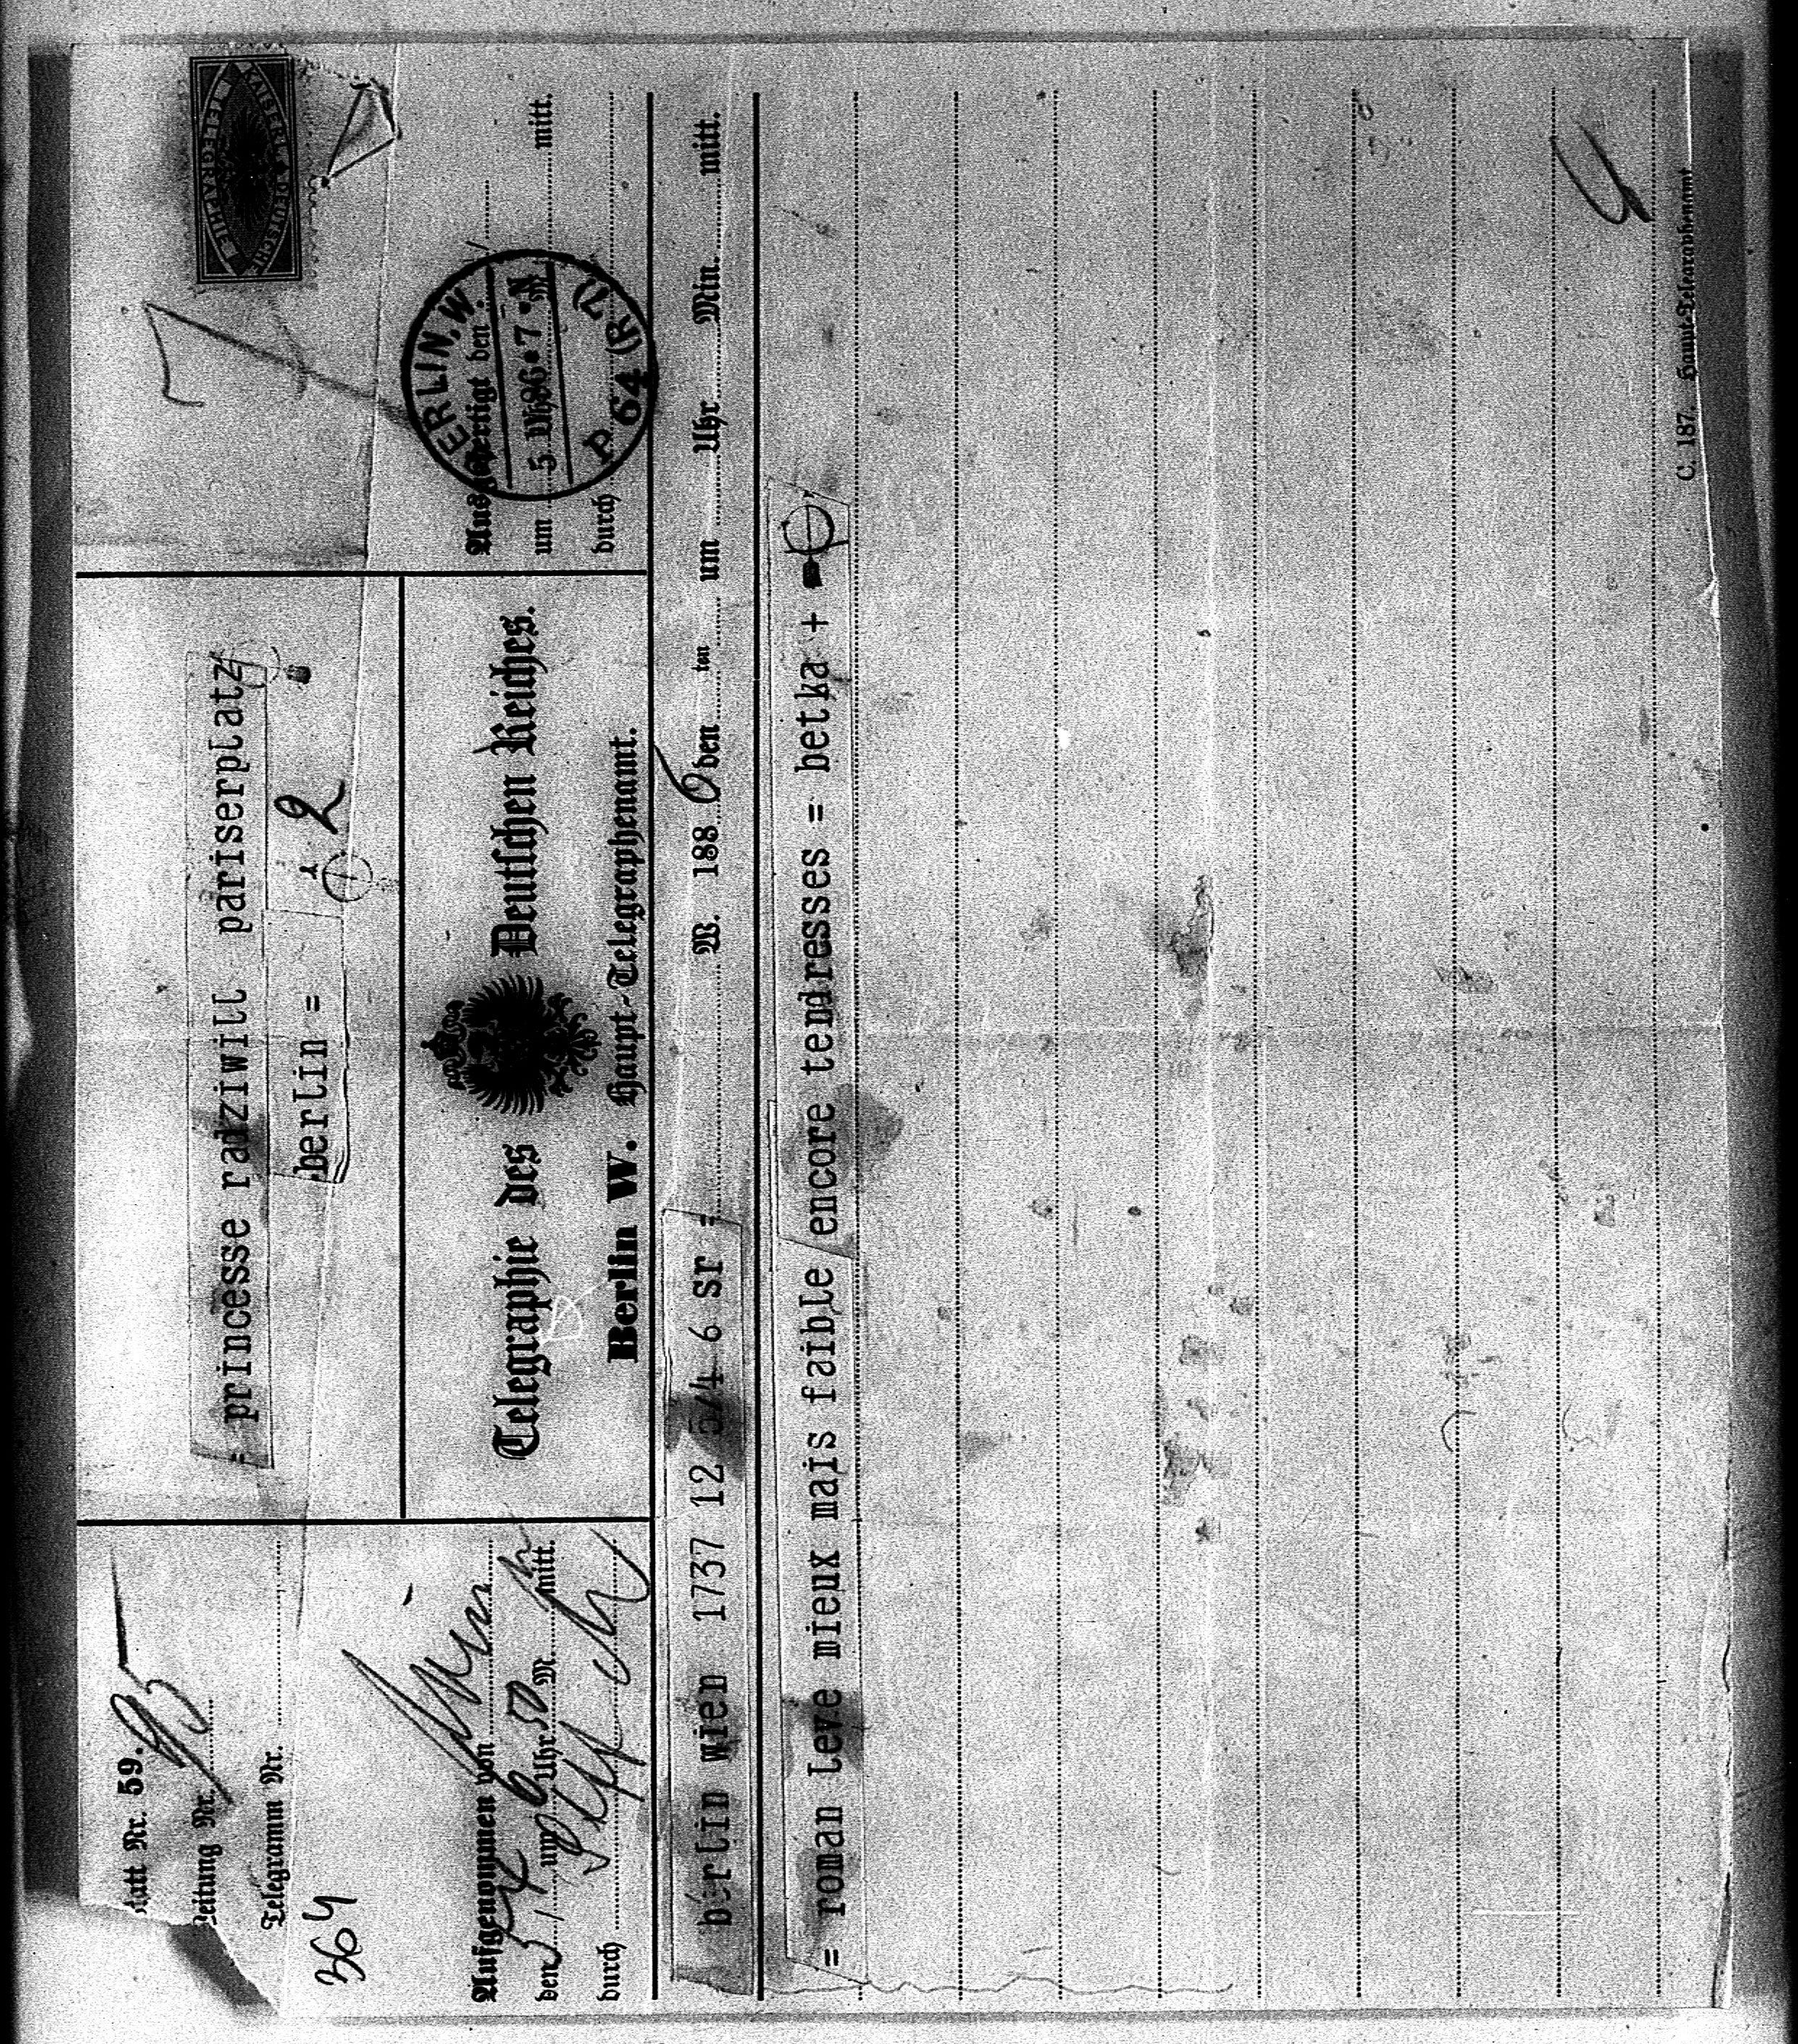 Blatt Nr. 59.
Leitung Nr. 95
Telegramm Nr.
364
Aufgenommen von
den 5/4 um 6 Uhr 50 M. mitt.
durch
= princesse radziwill pariserplatz
berlin = 2
Telegraphie des Deutschen Reiches.
Berlin W. Haupt-Telegraphenamt.
KAISERL. DEUTSCHE
TELEGRAPHIE
Ausgefertigt den
um M. mitt.
durch
BERLIN, W
5.VI.86*7-*N
P. 64 (R 7)
berlin wien 1737 12 5/4 6 sr = W. 1886 den ten um Uhr Min. mitt.
= roman leve mieux mais faible encore tendresses = betka +
C. 187. Haupt-Telegraphenamt